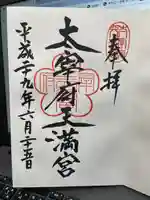 奉拝
太宰府天満宮
平成二十九年六月二十五日